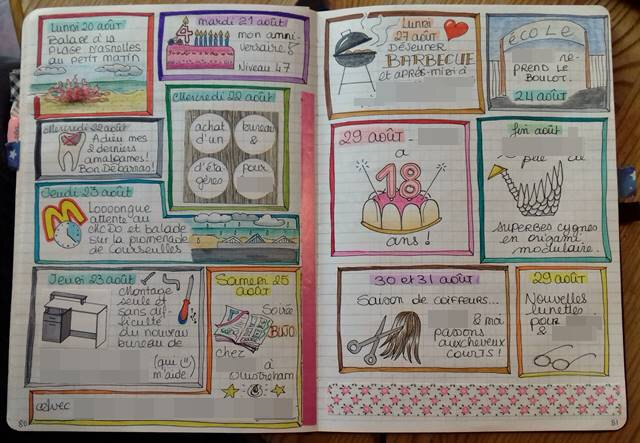 Lundi 20 août
Balade à la
plage d'asnelles
au petit matin
mardi 21 août
mon anni-
versaire !
Niveau 47
4
Mercredi 22 août
Adieu mes
2 derniers
amalgames !
Bon Débarras !
Mercredi 22 août
achat
d'un
bureau
&
d'éta-
gères
pour
Jeudi 23 août
Looooongue
attente au
McDo et balade
sur la promenade
de Courseulles
Jeudi 23 août
Montage
seule et
sans dif-
ficulté
du nouveau
bureau de
(qui
m'aide)
Samedi 25
août
Soirée
BUJO
chez
à
Ouistreham
avec
80
Lundi
27 août
Déjeuner
BARBECUE
et après-midi
école
re-
prend le
boulot.
24 août
29 août -
a
18
ans !
fin août
superbes cygnes
en origami
modulaire.
30 et 31 août
Saison de coiffeurs...
& moi
passons
aux cheveux
courts !
29 août
Nouvelles
lunettes
pour
&
81